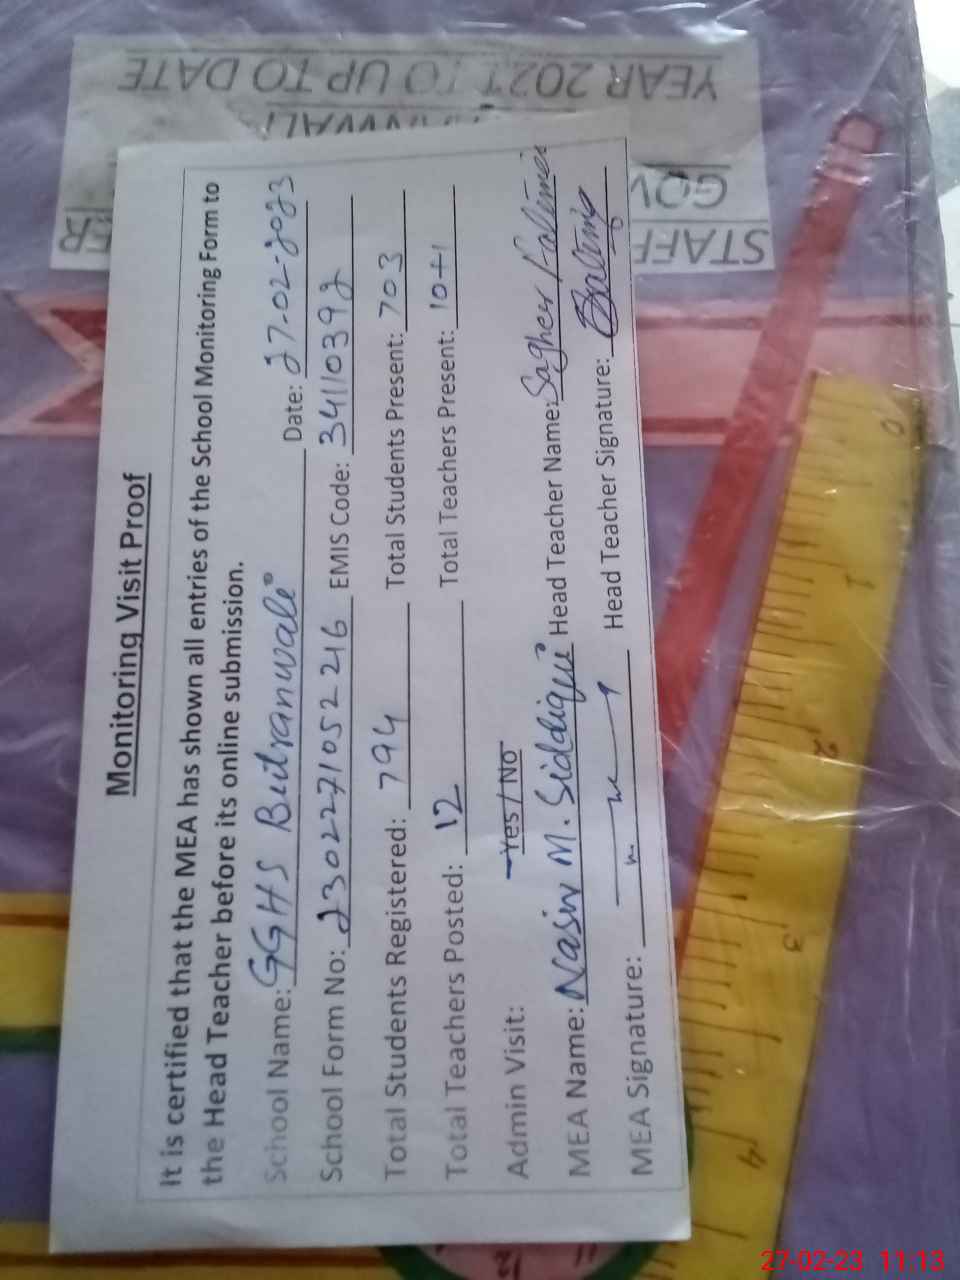 Monitoring Visit Proof
It is certified that the MEA has shown all entries of the School Monitoring Form to
the Head Teacher before its online submission.
School Name: GGHS Butranwali Date: 27-02-2023
School Form No: 2302271052216 EMIS Code: 34110392
Total Students Registered: 794 Total Students Present: 703
Total Teachers Posted: 12 Total Teachers Present: 10+1
Admin Visit: Yes / No
MEA Name: Nasir M. Siddiqui Head Teacher Name: Sagheer Fatima
MEA Signature: Head Teacher Signature:
STAFF
GOV
YEAR 2021 TO UP TO DATE
0
1
2
3
4
27-02-23 11:13